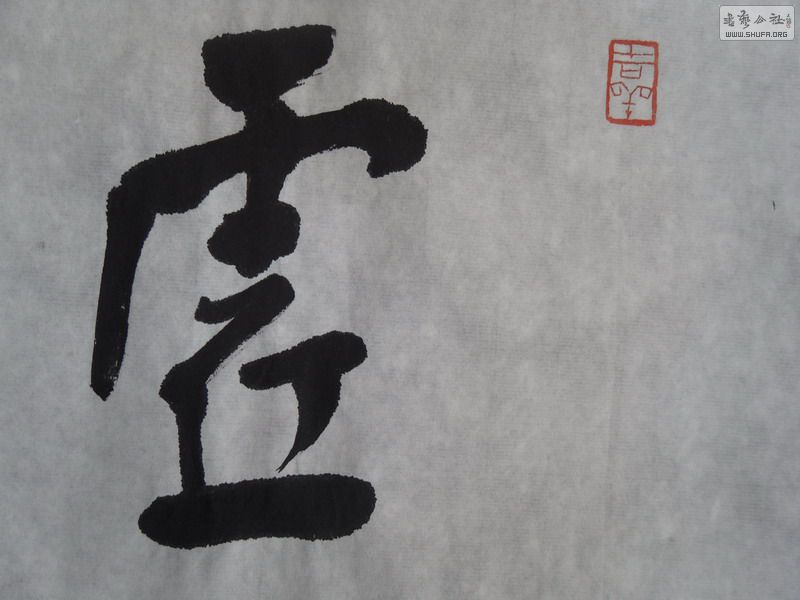 虚
书艺公社
WWW.SHUFA.ORG